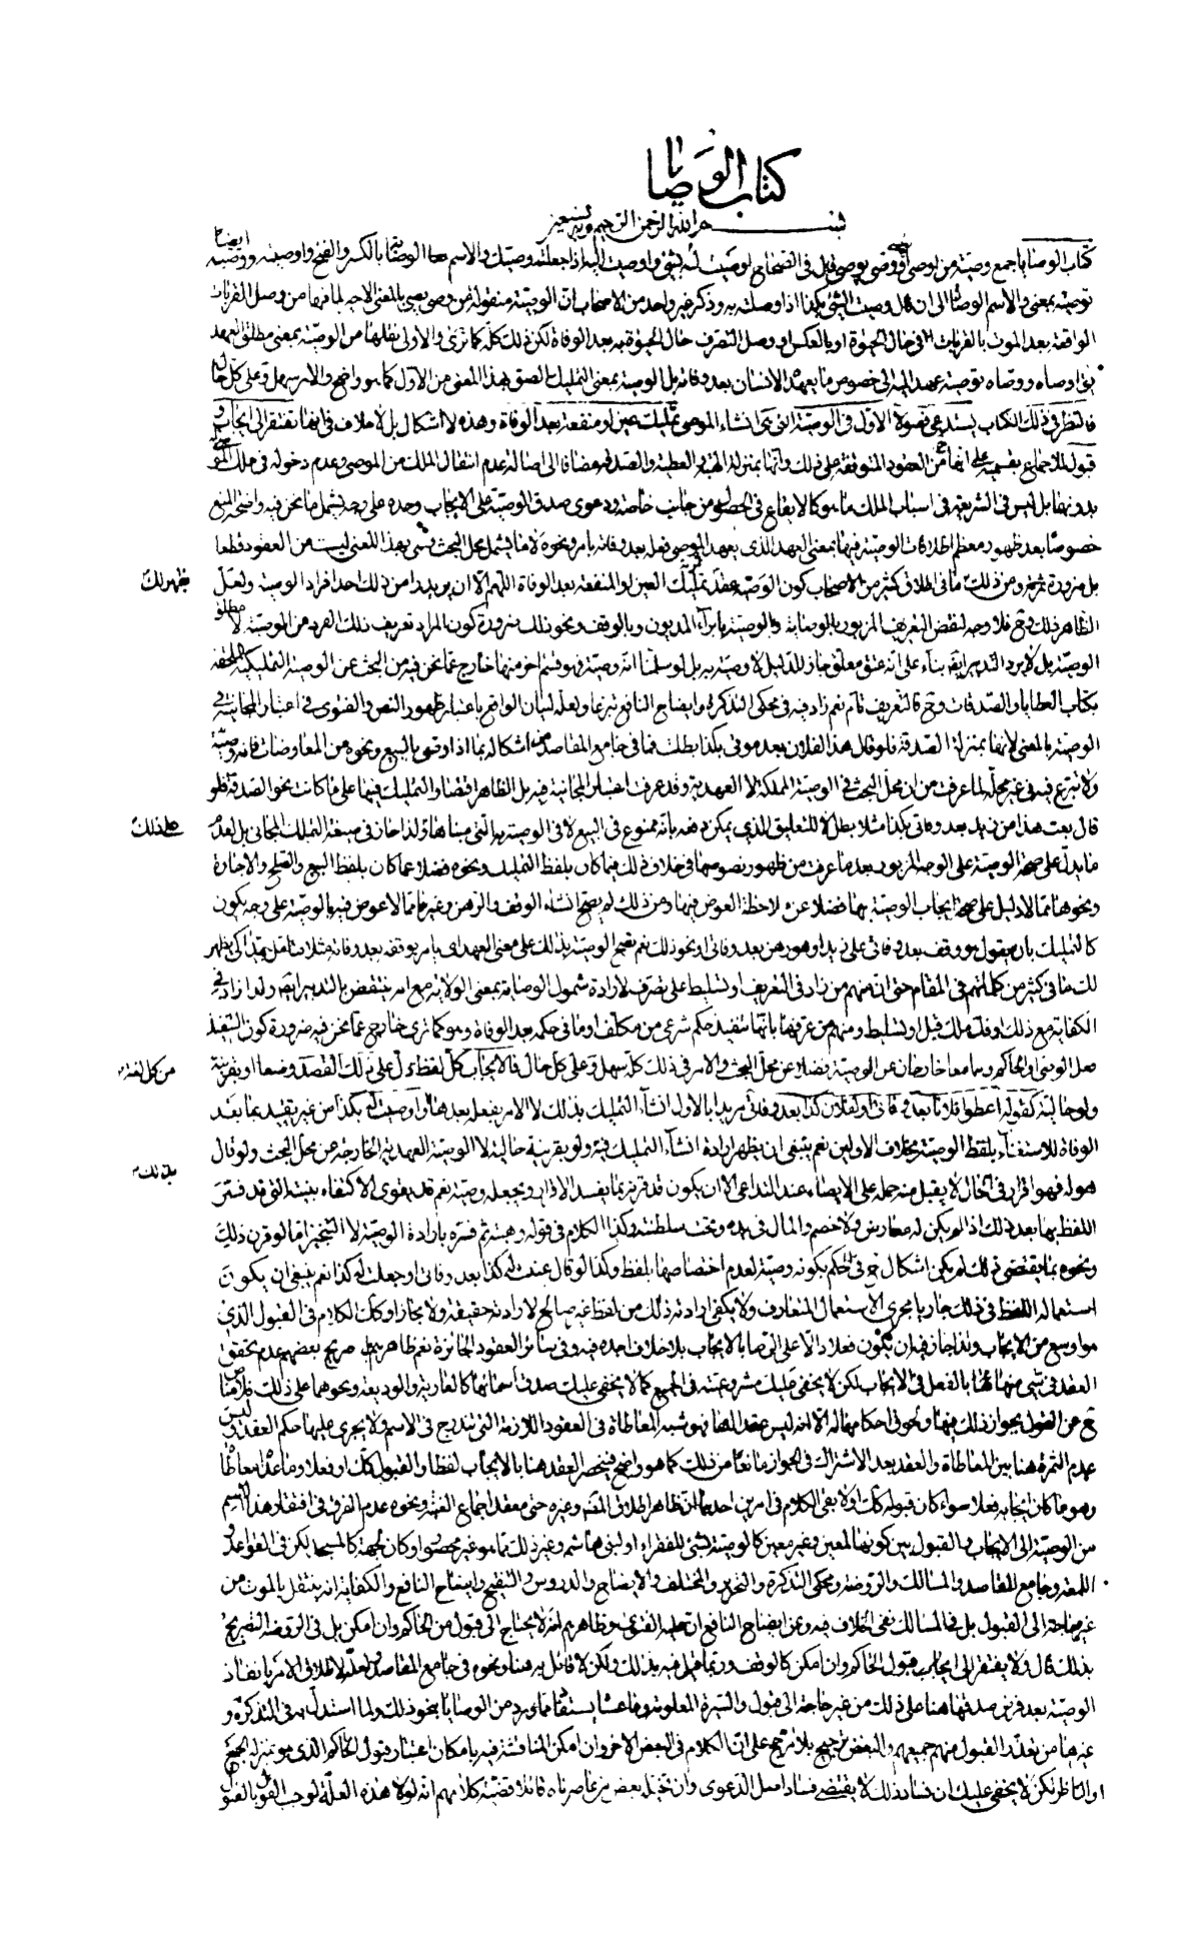 كتاب الوصايا
بسم الله الرحمن الرحيم وبه نستعين
كتاب الوصايا جمع وصية من اوصى يوصى قيل فى الصحاح اوصيت له بشئ واوصيت اليه اذا جعلته وصيك والاسم الوصاية بالكسر والفتح واوصيته ووصيته ايضا
توصية بمعنى والاسم الوصاة الى ان قال وصيت الشئ بكذا اذا وصلته به وذكر غير واحد من الاصحاب ان الوصية منقولة من وصى يصى بالمعنى الاخير لما فيها من وصل القربات
الواقعة بعد الموت بالقربات فى حال الحيوة او بالعكس او وصل التصرف حال الحيوة به بعد الوفاة لكن ذلك كله كما ترى والاولى نقلها من الوصية بمعنى مطلق العهد
يق اوصاه ووصاه توصية عهد اليه الى خصوص ما يعهد الانسان بعد وفاته بل الوصية بمعنى التمليك الصق بهذا المعنى من الاول كما هو واضح والامر سهل وعلى كل حال
فالنظر فى ذلك الكتاب يستدعى فصولا الاول فى الوصية التى هى انشاء الموصى تمليك عين او منفعة بعد الوفاة وهذه لا اشكال بل لا خلاف فى انها تفتقر الى ايجاب و
قبول للاجماع بقسميه على انها من العقود المتوقفة على ذلك وانها بمنزلة الهبة والعطية والصدقة مضافا الى اصالة عدم انتقال الملك من الموصى وعدم دخوله فى ملك
بدونها بل ليس فى الشريعة فى اسباب الملك ما هو كالايقاع فى الحصول من جانب خاصة ودعوى صدق الوصية على الايجاب وحده على وجه يشمل ما نحن فيه واضحة المنع
خصوصا بعد ظهور معظم اطلاقات الوصية فيها بمعنى العهد الذى يعهد الموصى بفعله بعد وفاته بامر ونحوه لا ما يشمل محل البحث وهى بهذا المعنى ليست من العقود قطعا
بل ضرورة ومن ذلك ما فى اطلاق كثير من الاصحاب كون الوصية عقد تمليك العين او المنفعة بعد الوفاة اللهم الا ان يريدوا من ذلك احد افراد الوصية ولعل
يظهر لك
الظاهر ذلك وح فلا وجه لنقض التعريف المزبور بالوصاية والوصية بابراء المديون وبالوقف ونحو ذلك ضرورة كون المراد تعريف ذلك الفرد من الوصية لا مطلق
الوصية بل لا يرد التدبير ايضا بناء على انه عتق معلق جاز للدليل لا وصية به بل لو سلمنا انه وصية فهو قسم اخر منها خارج عما نحن فيه من البحث عن الوصية التمليكية الملحقة
بكتاب العطايا والصدقات وح فالتعريف تام نعم زاد فيه فى محكى التذكرة وايضاح النافع تبرعا ولعله لبيان الواقع باعتبار ظهور النص والفتوى فى اعتبار المجانية فى
الوصية بالمعنى لانها بمنزلة الصدقة فلو قال هذا لفلان بعد موتى بكذا بطلت فما فى جامع المقاصد من اشكاله بما اذا اوصى بالبيع ونحوه من المعاوضات فانه وصية
ولا تبرع فيه فى غير محله لما عرفت من ان محل البحث فى الوصية المملكة لا العهدية وقد عرفت اعتبار المجانية فيه بل الظاهر اقتضاء التمليك فيها على ما كانت نحو الصدقة فلو
قال بعت هذا من زيد بعد وفاتى بكذا مثلا بطل لا للتعليق الذى يمكن دفعه بانه ممنوع فى البيع لا فى الوصية به التى مبناها ولذا جاز فى صيغة التملك المجانى بل لعدم
على ذلك
ما يدل على صحة الوصية على الوجه المزبور بعد ما عرفت من ظهور نصوصها فى خلاف ذلك فيما كان بلفظ التمليك ونحوه فضلا عما كان بلفظ البيع والصلح والاجارة
ونحوها مما لا دليل على صحة ايجاب الوصية بها فضلا عن ملاحظة العوض فيها ومن ذلك لم يصح انشاء الوقف والرهن وغيرهما مما لا عوض فيه بالوصية على وجه يكون
كالتمليك بان يقول هو وقف بعد وفاتى على زيد او هو رهن بعد وفاتى او نحو ذلك نعم تصح الوصية بذلك على معنى العهد اى بامر بوقفه بعد وفاته مثلا تامل جيدا كى يظهر
لك ما فى كثير من كلماتهم فى المقام حتى ان منهم من زاد فى التعريف او تسليط على تصرف لارادة شمول الوصاية بمعنى الولاية مع انه ينتقض بالتدبير ايضا ولذا زاد فى
الكفاية مع ذلك او فك ملك قيل او تسليط ومنهم من عرفها بانها تنفيذ حكم شرعى من مكلف او ما فى حكمه بعد الوفاة وهو كما ترى خارج عما نحن فيه ضرورة كون التنفيذ
فعل الوصى او الحاكم وهما معا خارجان عن الوصية فضلا عن محل البحث والامر فى ذلك كله سهل وعلى كل حال فالايجاب كل لفظ دل على ذلك القصد وضعا او بقرينة
من كل لغة
ولو حالية كقوله اعطوا فلانا بعد وفاتى او لفلان كذا بعد وفاتى مريدا بالاول انشاء التمليك بذلك لا الامر بفعل بعدها او اوصيت له بكذا من غير تقييد بما بعد
الوفاة للاستغناء بلفظ الوصية بخلاف الاولين نعم ينبغى ان يظهر ارادة انشاء التمليك فيه ولو بقرينة حالية لا الوصية العهدية الخارجة عن محل البحث ولو قال
هو له فهو اقرار فى الحال لا يقبل منه حمله على الايصاء عند التداعى الا ان يكون قد قرنه بما يفسد الاقرار ويجعله وصية نعم قد يقوى الاكتفاء بنيته التى قد فسر
بذلك
اللفظ بها بعد ذلك اذا لم يكن له معارض ولا خصم والمال فى يده وتحت سلطنته وكذا الكلام فى قوله وهبته ثم فسره بارادة الوصية لا التنجيز اما لو قرن ذلك
ونحوه بما يقتضى ذلك لم يكن اشكال ح فى الحكم بكونه وصية لعدم اختصاصها بلفظ وكذا لو قال عينت له كذا بعد وفاتى او جعلت له كذا نعم ينبغى ان يكون
استعماله اللفظ فى ذلك جاريا مجرى الاستعمال المتعارف ولا يكفى ارادته ذلك من لفظ غير صالح لارادته حقيقة ولا مجازا وكذا الكلام فى القبول الذى
هو اوسع من الايجاب ولذا جاز فيه ان يكون فعلا دالا على الرضا بالايجاب بلا خلاف اجده فيه وفى سائر العقود الجائزة نعم ظاهرهم بل صريح بعضهم عدم تحقق
العقد فى شئ منها ايضا بالفعل فى الايجاب لكن لا يخفى عليك مشروعيته فى الجميع كما لا يخفى عليك صدق اسمائها كالعارية والوديعة ونحوهما على ذلك فلا مناص
ح عن القول بجواز ذلك فيها ولحوق احكامها له الا انه ليس عقدا لها فهو شبه المعاطاة فى العقود اللازمة التى تندرج فى الاسم ولا يجرى عليها حكم العقد وليس
عدم الثمرة هنا بين المعاطاة والعقد بعد الاشتراك فى الجواز مانعا من ذلك كما هو واضح فينحصر العقد هنا بالايجاب لفظا والقبول كك او فعلا وما عداه معاطاة
وهو ما كان ايجابه فعلا سواء كان قبوله كك او لا بقى الكلام فى امرين احدهما ان ظاهر اطلاق المصنف وغيره حتى معقد اجماع الغنية ونحوه عدم الفرق فى افتقار هذا القسم
من الوصية الى الايجاب والقبول بين كونها لمعين وغير معين كالوصية بشئ للفقراء او لبنى هاشم وغير ذلك مما هو غير محصور او كان لجهة كالمسجد لكن فى القواعد و
اللمعة وجامع المقاصد والمسالك والروضة ومحكى التذكرة والتحرير والمختلف والايضاح والدروس والتنقيح وايضاح النافع والكفاية انه ينتقل بالموت من
غير حاجة الى القبول بل فى المسالك نفى الخلاف فيه وعن ايضاح النافع ان عليه الفتوى وظاهرهم انه لا يحتاج الى قبول من الحاكم وان امكن بل فى الروضة التصريح
بذلك قال ولا يفتقر الى ايجاب قبول الحاكم وان امكن كالوقف وربما قيل فيه بذلك ولكن لا قائل به هنا ونحوه فى جامع المقاصد ولعله لاطلاق الامر بانفاذ
الوصية بعد فرض صدقها هنا على ذلك من غير حاجة الى قبول والسيرة المعلومة وما عساه يستفاد مما ورد من الوصايا بنحو ذلك ولما استدل به فى التذكرة و
غيرها من تعذر القبول منهم جميعهم والبعض ترجيح بلا مرجح على ان الكلام فى البعض الاخر وان امكن المناقشة فيه بامكان اعتبار قبول الحاكم الذى هو بمنزلة الجميع
او الناظر لكن لا يخفى عليك ان فساد ذلك لا يقتضى فساد اصل الدعوى وان تخيله بعض من عاصرناه قائلا قضية كلامهم انه لولا هذه العلة لوجب القول بالقبول